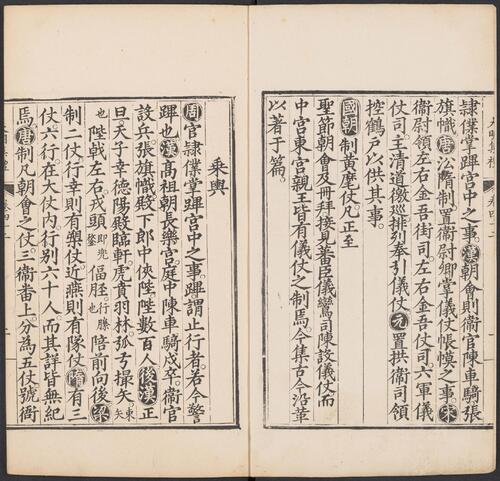 隷僕掌蹕宮中之事。漢朝會則衛官陳車騎張
旗幟。唐㳂隋制置衛尉卿掌儀仗帳幕之事。宋
衛尉領左右金吾街司。左右金吾仗司。六軍儀
仗司。主清道徼廵排列奉引儀仗。元置拱衛司領
控鶴戶以供其事。
國朝制黄麾仗。凡正至
聖節朝會及冊拜接見蕃臣。儀鸞司陳設儀仗。而
中宮東宮親王皆有儀仗之制焉。今集古今沿革
以著于篇。
乘輿
周官隷僕掌蹕宮中之事。蹕。謂止行者。若今警
蹕也。漢高祖朝長樂宮。庭中陳車騎戍卒衛官
設兵。張旗幟。殿下郎中俠陛。陛數百人。後漢正
旦。天子幸德陽殿臨軒。虎賁羽林弧弓撮矢。東矢
也陛戟左右。戎頭即兠鍪偪脛也。行縢陪前向後。梁
制二仗。行幸則有槊仗。近燕則有隊仗。隋有三
仗。六行在大仗内。行别六十人。而其詳皆無紀
焉。唐制凡朝會之仗。三衛番上。分為五仗。號衙